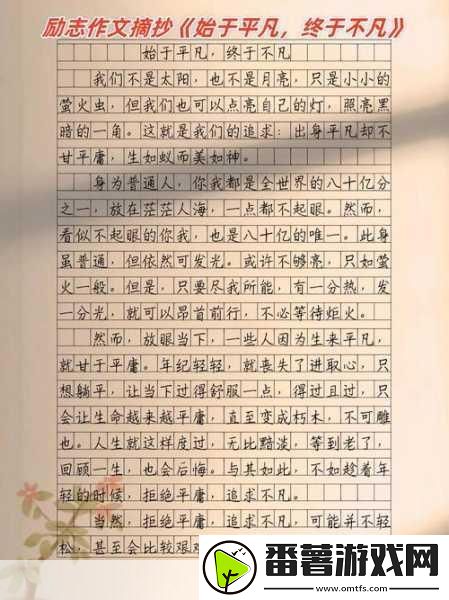 励志作文摘抄《始于平凡，终于不凡》
始于平凡，终于不凡
我们不是太阳，也不是月亮，只是小小的
萤火虫，但我们也可以点亮自己的灯，照亮黑
暗的一角。这就是我们的追求：出身平凡却不
甘平庸，生如蚁而美如神。
身为普通人，你我都是全世界的八十亿分
之一，放在茫茫人海，一点都不起眼。然而，
看似不起眼的你我，也是八十亿的唯一。此身
虽普通，但依然可发光。或许不够亮，只如萤
火一般。但是，只要尽我所能，有一分热，发
一分光，就可以昂首前行，不必等待炬火。
然而，放眼当下，一些人因为生来平凡，
就甘于平庸。年纪轻轻，就丧失了进取心，只
想躺平，让当下过得舒服一点，得过且过，只
会让生命越来越平庸，直至变成朽木，不可雕
也。人生就这样度过，无比黯淡，等到老了，
回顾一生，也会后悔。与其如此，不如趁着年
轻的时候，拒绝平庸，追求不凡。
当然，拒绝平庸，追求不凡，可能并不轻
松，甚至会比较艰
番薯游戏网
www.omtfs.com